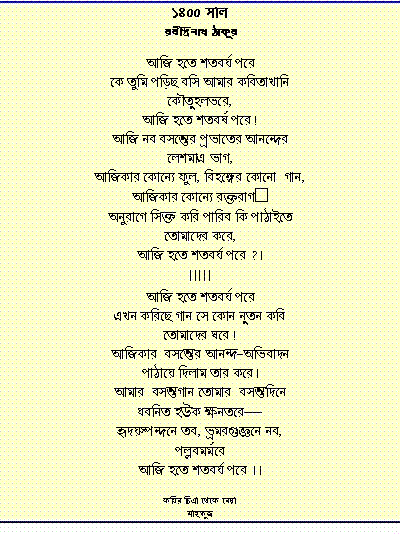 ১৪০০ সাল
রবীন্দ্রনাথ ঠাকুর
আজি হতে শতবর্ষ পরে
কে তুমি পড়িছ বসি আমার কবিতাখানি
কৌতুহলভরে,
আজি হতে শতবর্ষ পরে!
আজি নব বসন্তের প্রভাতের আনন্দের
লেশমাএ ভাগ,
আজিকার কোনো ফুল, বিহঙ্গের কোনো গান,
আজিকার কোনো রক্তরাগ
অনুরাগে সিক্ত করি পারিব কি পাঠাইতে
তোমাদের করে,
আজি হতে শতবর্ষ পরে ?।
।।।।।
আজি হতে শতবর্ষ পরে
এখন করিছে গান সে কোন নুতন কবি
তোমাদের ঘরে!
আজিকার বসন্তের আনন্দ-অভিবাদন
পাঠায়ে দিলাম তার করে।
আমার বসন্তগান তোমার বসন্তদিনে
ধবনিত হউক ক্ষনতরে—
হৃদয়স্পন্দনে তব, ভ্রমরগুঞ্জনে নব,
পল্লবমর্মরে
আজি হতে শতবর্ষ পরে ।।
থেকে নেয়া